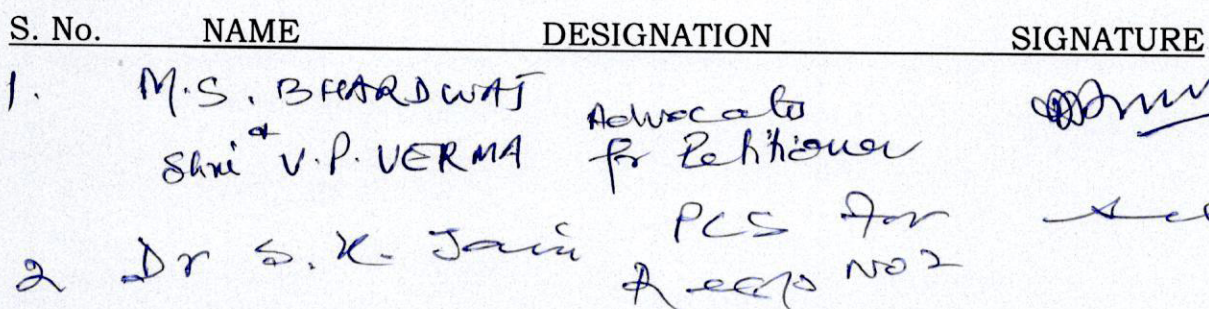 S. No. NAME DESIGNATION SIGNATURE
1. M.S. BHARDWAJ Advocate
& Shri V.P. VERMA for Petitioner
2 Dr S. K. Jain PCS for
Resp No 2